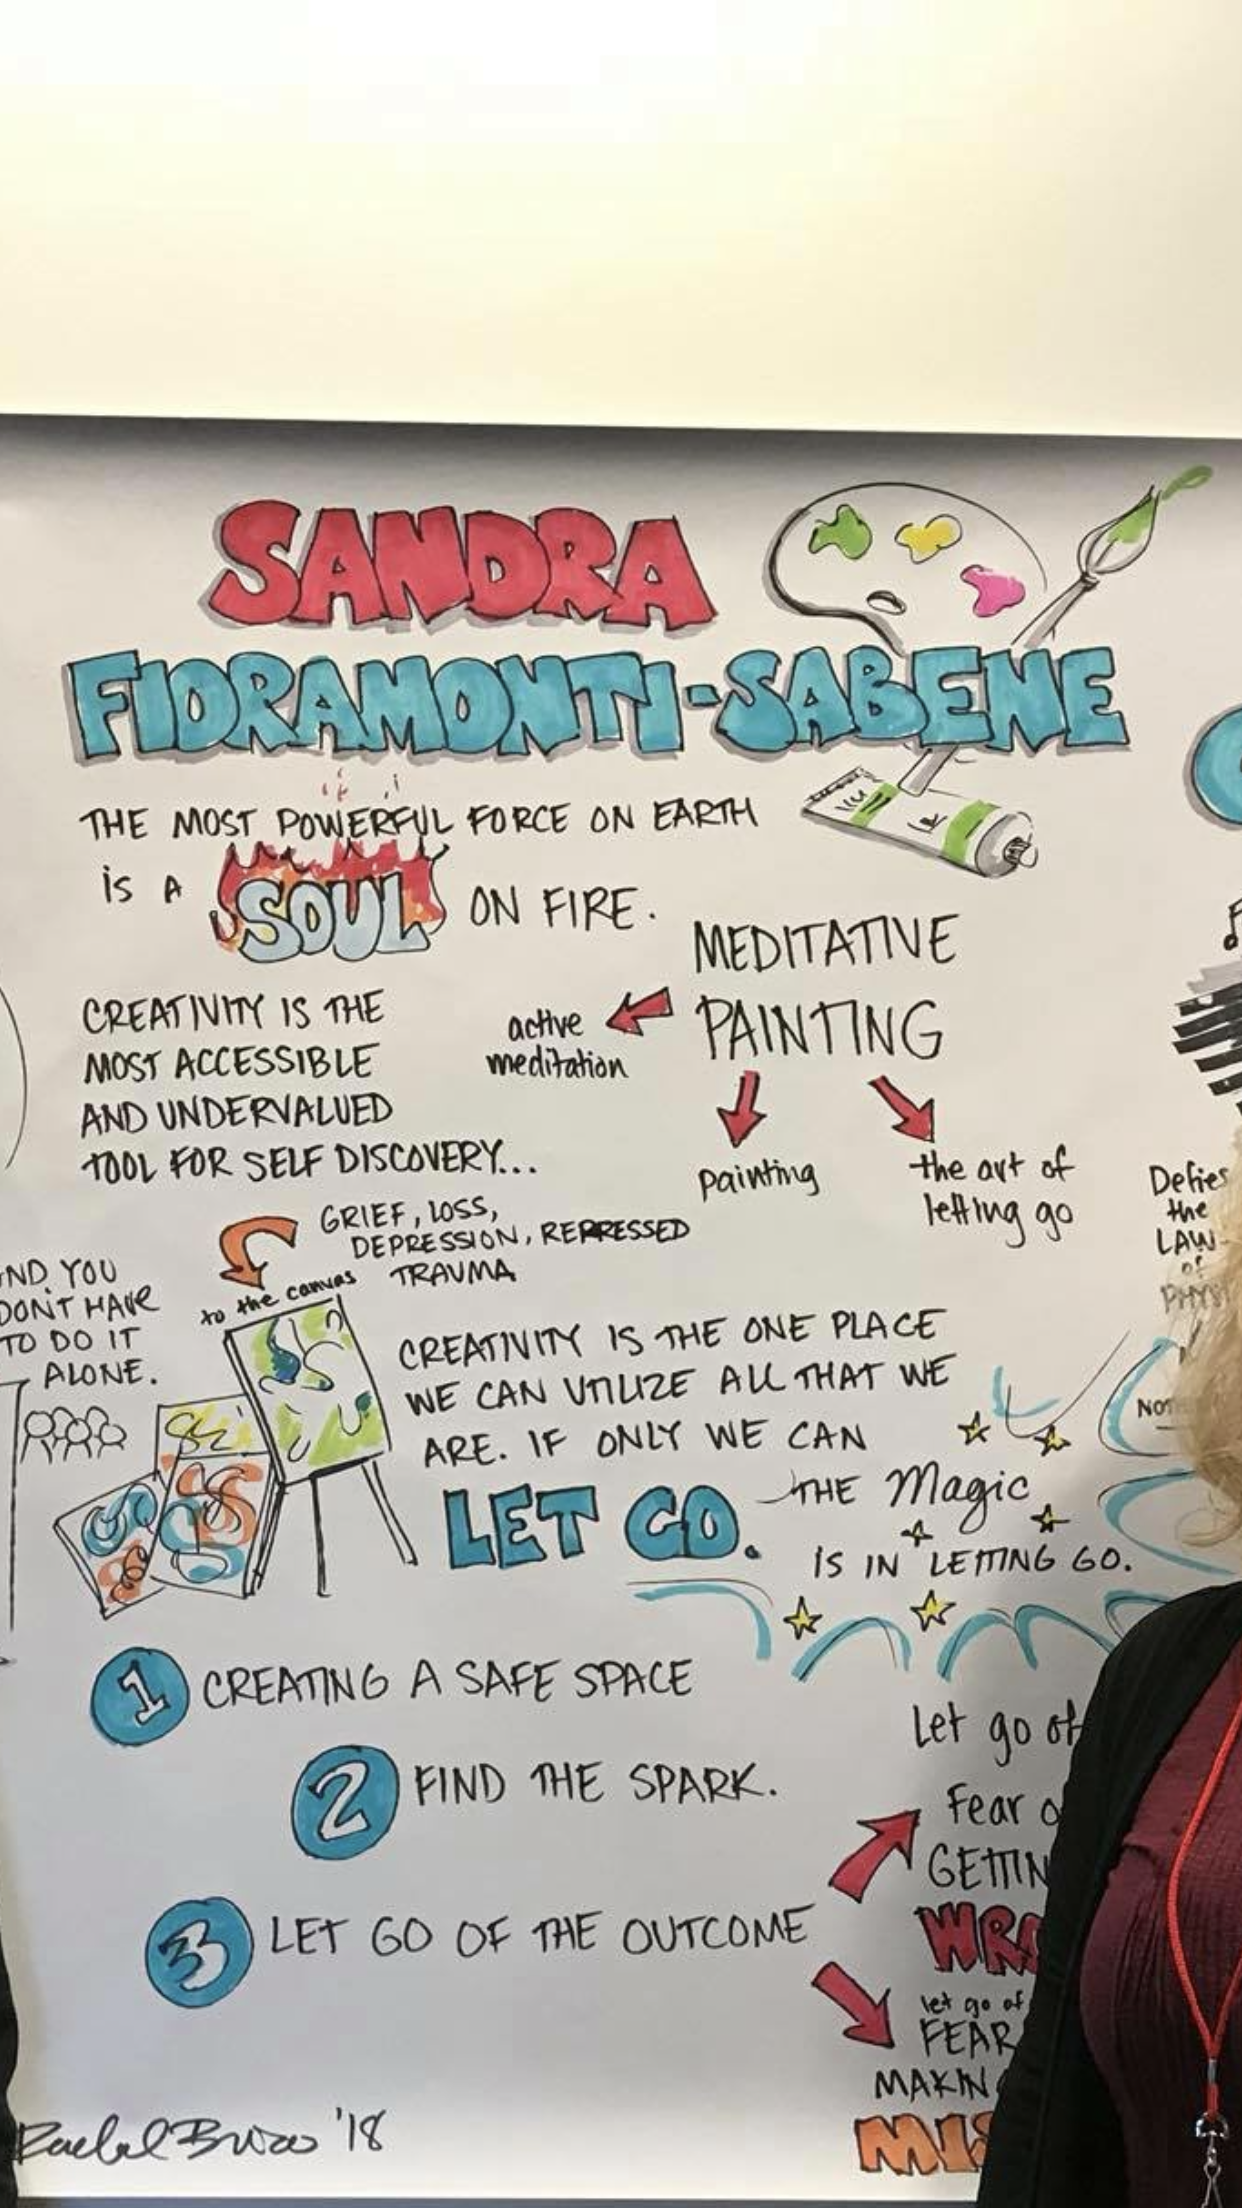 SANDRA
FIORAMONTI-SABENE
THE MOST POWERFUL FORCE ON EARTH
IS A SOUL ON FIRE.
MEDITATIVE
PAINTING
active
meditation
painting
the art of
letting go
CREATIVITY IS THE
MOST ACCESSIBLE
AND UNDERVALUED
TOOL FOR SELF DISCOVERY...
GRIEF, LOSS,
DEPRESSION, REPRESSED
TRAUMA
to the canvas
YOU
DON'T HAVE
TO DO IT
ALONE.
CREATIVITY IS THE ONE PLACE
WE CAN UTILIZE ALL THAT WE
ARE. IF ONLY WE CAN
LET GO.
THE Magic
IS IN LETTING GO.
1 CREATING A SAFE SPACE
2 FIND THE SPARK.
3 LET GO OF THE OUTCOME
Let go of
Fear
let go of
FEAR
Defies
the
LAW
of
'18